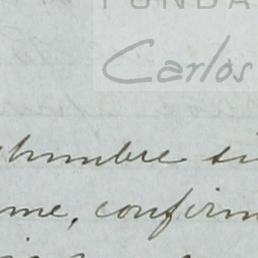 FUNDA
Carlos
tumbre si
me, confirm